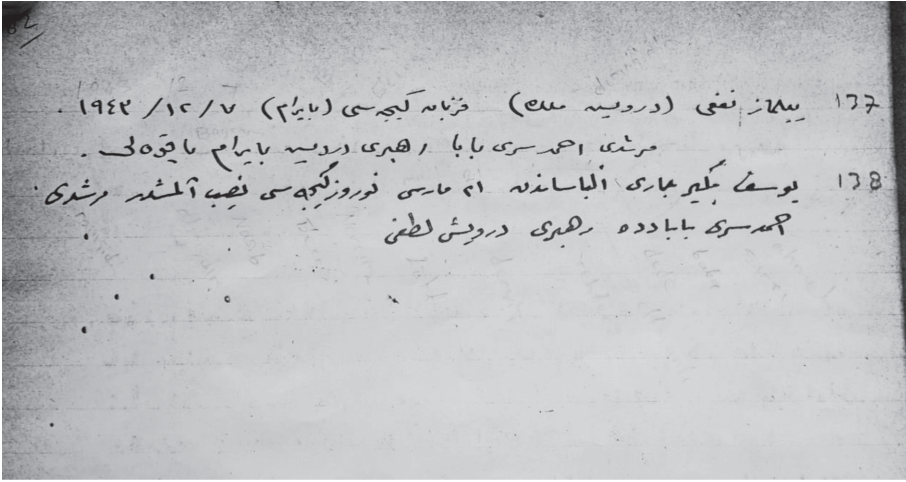 137 ييلماز نفعى (درويش ملك) قربان كيجه‌سى (بايرام) ٧/ ١٢/ ١٩٤٣ .
مرشدى احمد سرى بابا رهبرى درويش بايرام ياقوه‌لى .
138 يوسف بكير عارى ايلباساندن ٢١ مارس نوروز كيجه‌سى نصيب آلمشدر مرشدى
احمد سرى بابا دده رهبرى درويش لطفى